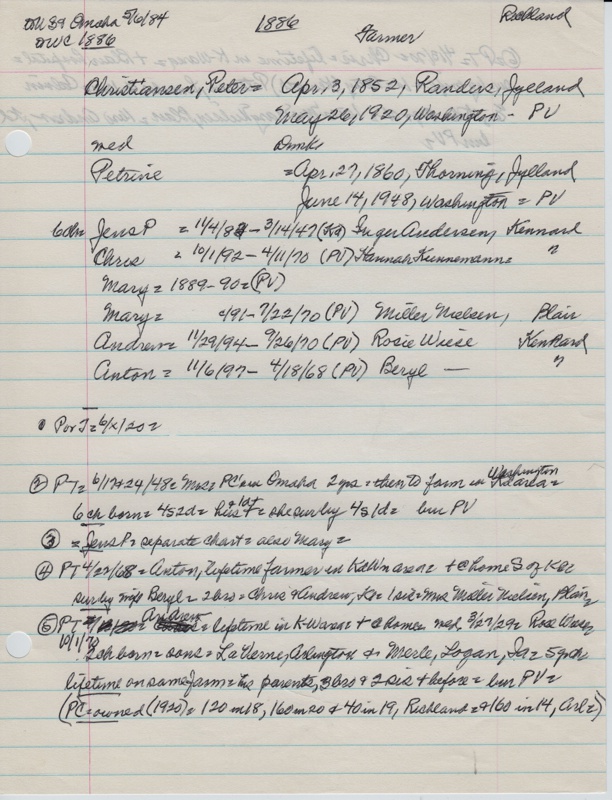 DW 39 Omaha 5/6/84 1886 Richland
DWC 1886 Farmer
Christiansen, Peter = Apr. 3, 1852, Randers, Jylland
May 26, 1920, Washington - PV
med Dmk
Petrine = Apr. 27, 1860, Thorning, Jylland
June 14, 1948, Washington = PV
6ch = Jens P = 11/4/89 - 3/14/47 (Ka) Inger Andersen, Kennard
Chris = 10/1/92 - 4/11/70 (PV) Hannah Kunnemann = "
Mary = 1889-90 = (PV)
Mary = /91 - 7/22/70 (PV) Miller Nielsen, Blair
Andrew = 11/29/94 - 9/26/70 (PV) Rosie Wiese Kennard
Anton = 11/6/97 - 4/18/68 (PV) Beryl — "
① P or T = 6/x/20 =
② PT = 6/17+24/48 = Mrs = PC in Omaha 2 yrs = then to farm in Washington area =
6 ch born = 4s 2d = hus + 1dt = she sur by 4s 1d = bur PV
③ = Jens P = separate chart = also Mary =
④ PT 4/22/68 = Anton, lifetime farmer in K+W area = + @ home S of K =
sur by wife Beryl = 2 bro = Chris & Andrew, Ka = 1 sis = Mrs Miller Nielsen, Blair
⑤ PT 10/1/70 = Andrew = lifetime in K-W area = + @ home med 3/27/29 = Rose Wiese
2 ch born = sons = LaVerne, Arlington & Merle, Logan, Ia = 5 gch
lifetime on same farm = his parents, 3 bro & 2 sis + before = bur PV =
(PC = owned (1920) = 120 in 18, 160 in 20 & 40 in 19, Richland = & 160 in 14, Arl =)